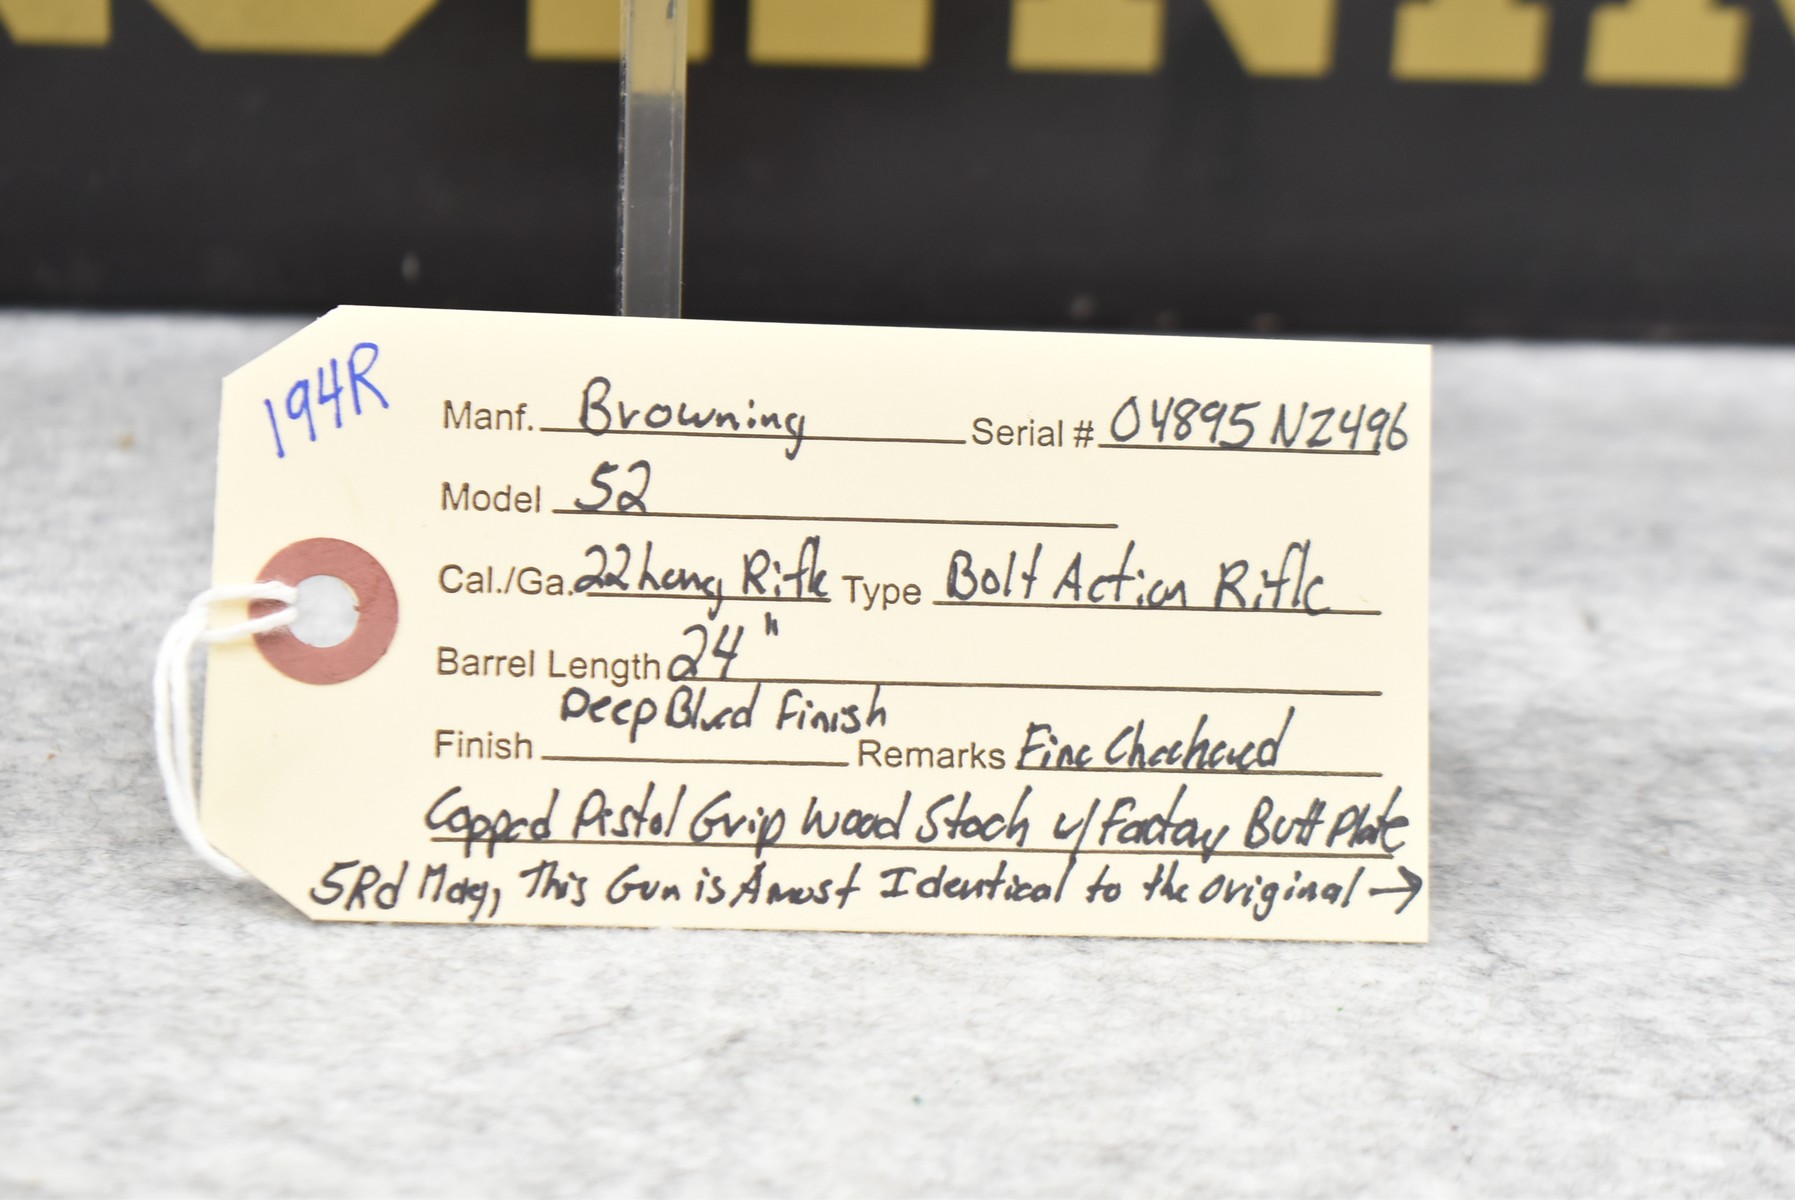 194R
Manf. Browning Serial # 04895NZ496
Model 52
Cal./Ga. 22 Long Rifle Type Bolt Action Rifle
Barrel Length 24"
Deep Blued Finish
Finish Remarks Fine Checkered
Capped Pistol Grip Wood Stock w/ Factory Butt Plate
5Rd Mag, This Gun is Amost Identical to the original →